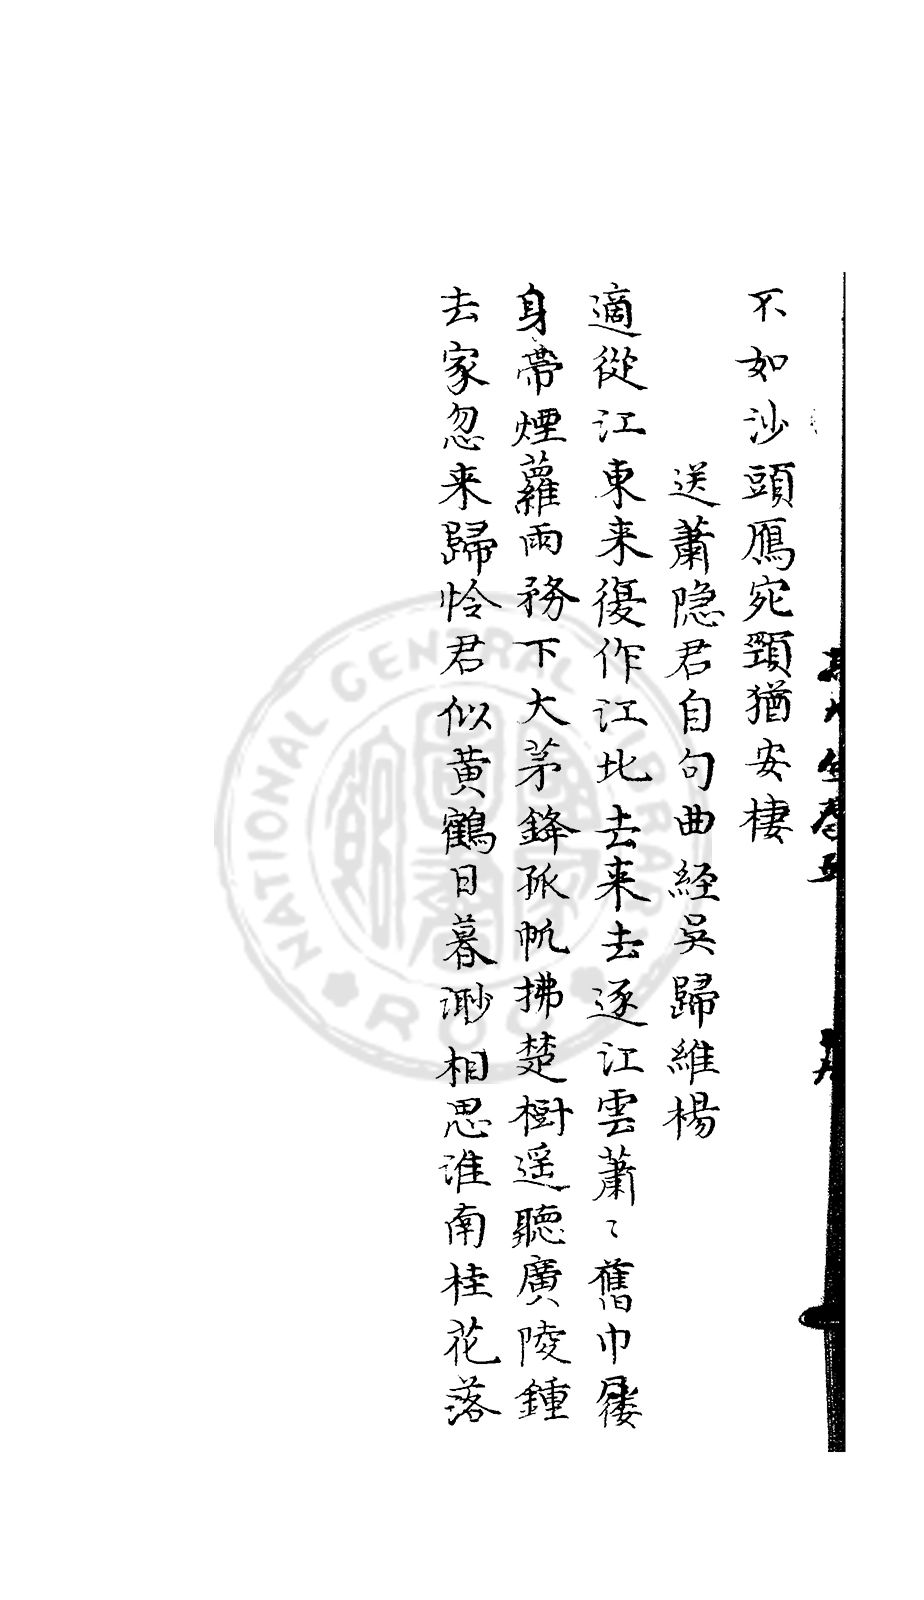 不如沙頭鴈宛頸猶安棲
送蕭隐君自句曲経吳歸維楊
適從江東来復作江北去来去逐江雲蕭〻舊巾屨
身帶煙蘿雨務下大茅鋒孤帆拂楚樹遥聽廣陵鍾
去家忽来歸怜君似黄鶴日暮渺相思淮南桂花落
NATIONAL CENTRAL LIBRARY
ROC